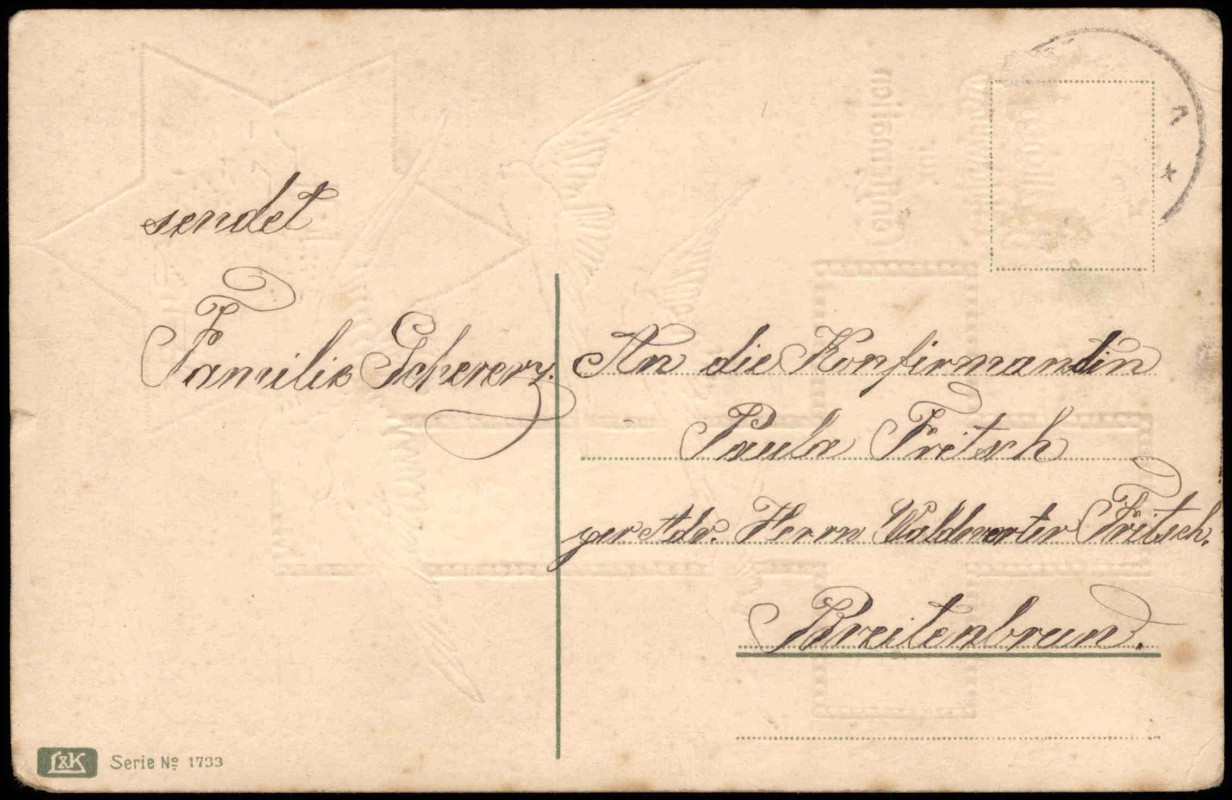 sendet
Familie Schererz.
An die Konfirmandin
Paula Fritsch
per Adr. Herrn Waldwerter Fritsch.
Breitenbrun.
L&K Serie No 1733